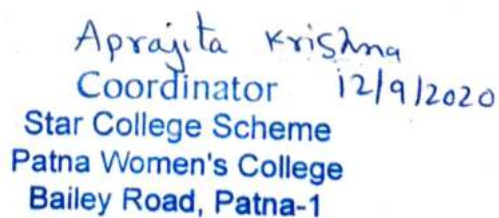 Aprajita Krishna
Coordinator 12/9/2020
Star College Scheme
Patna Women's College
Bailey Road, Patna-1